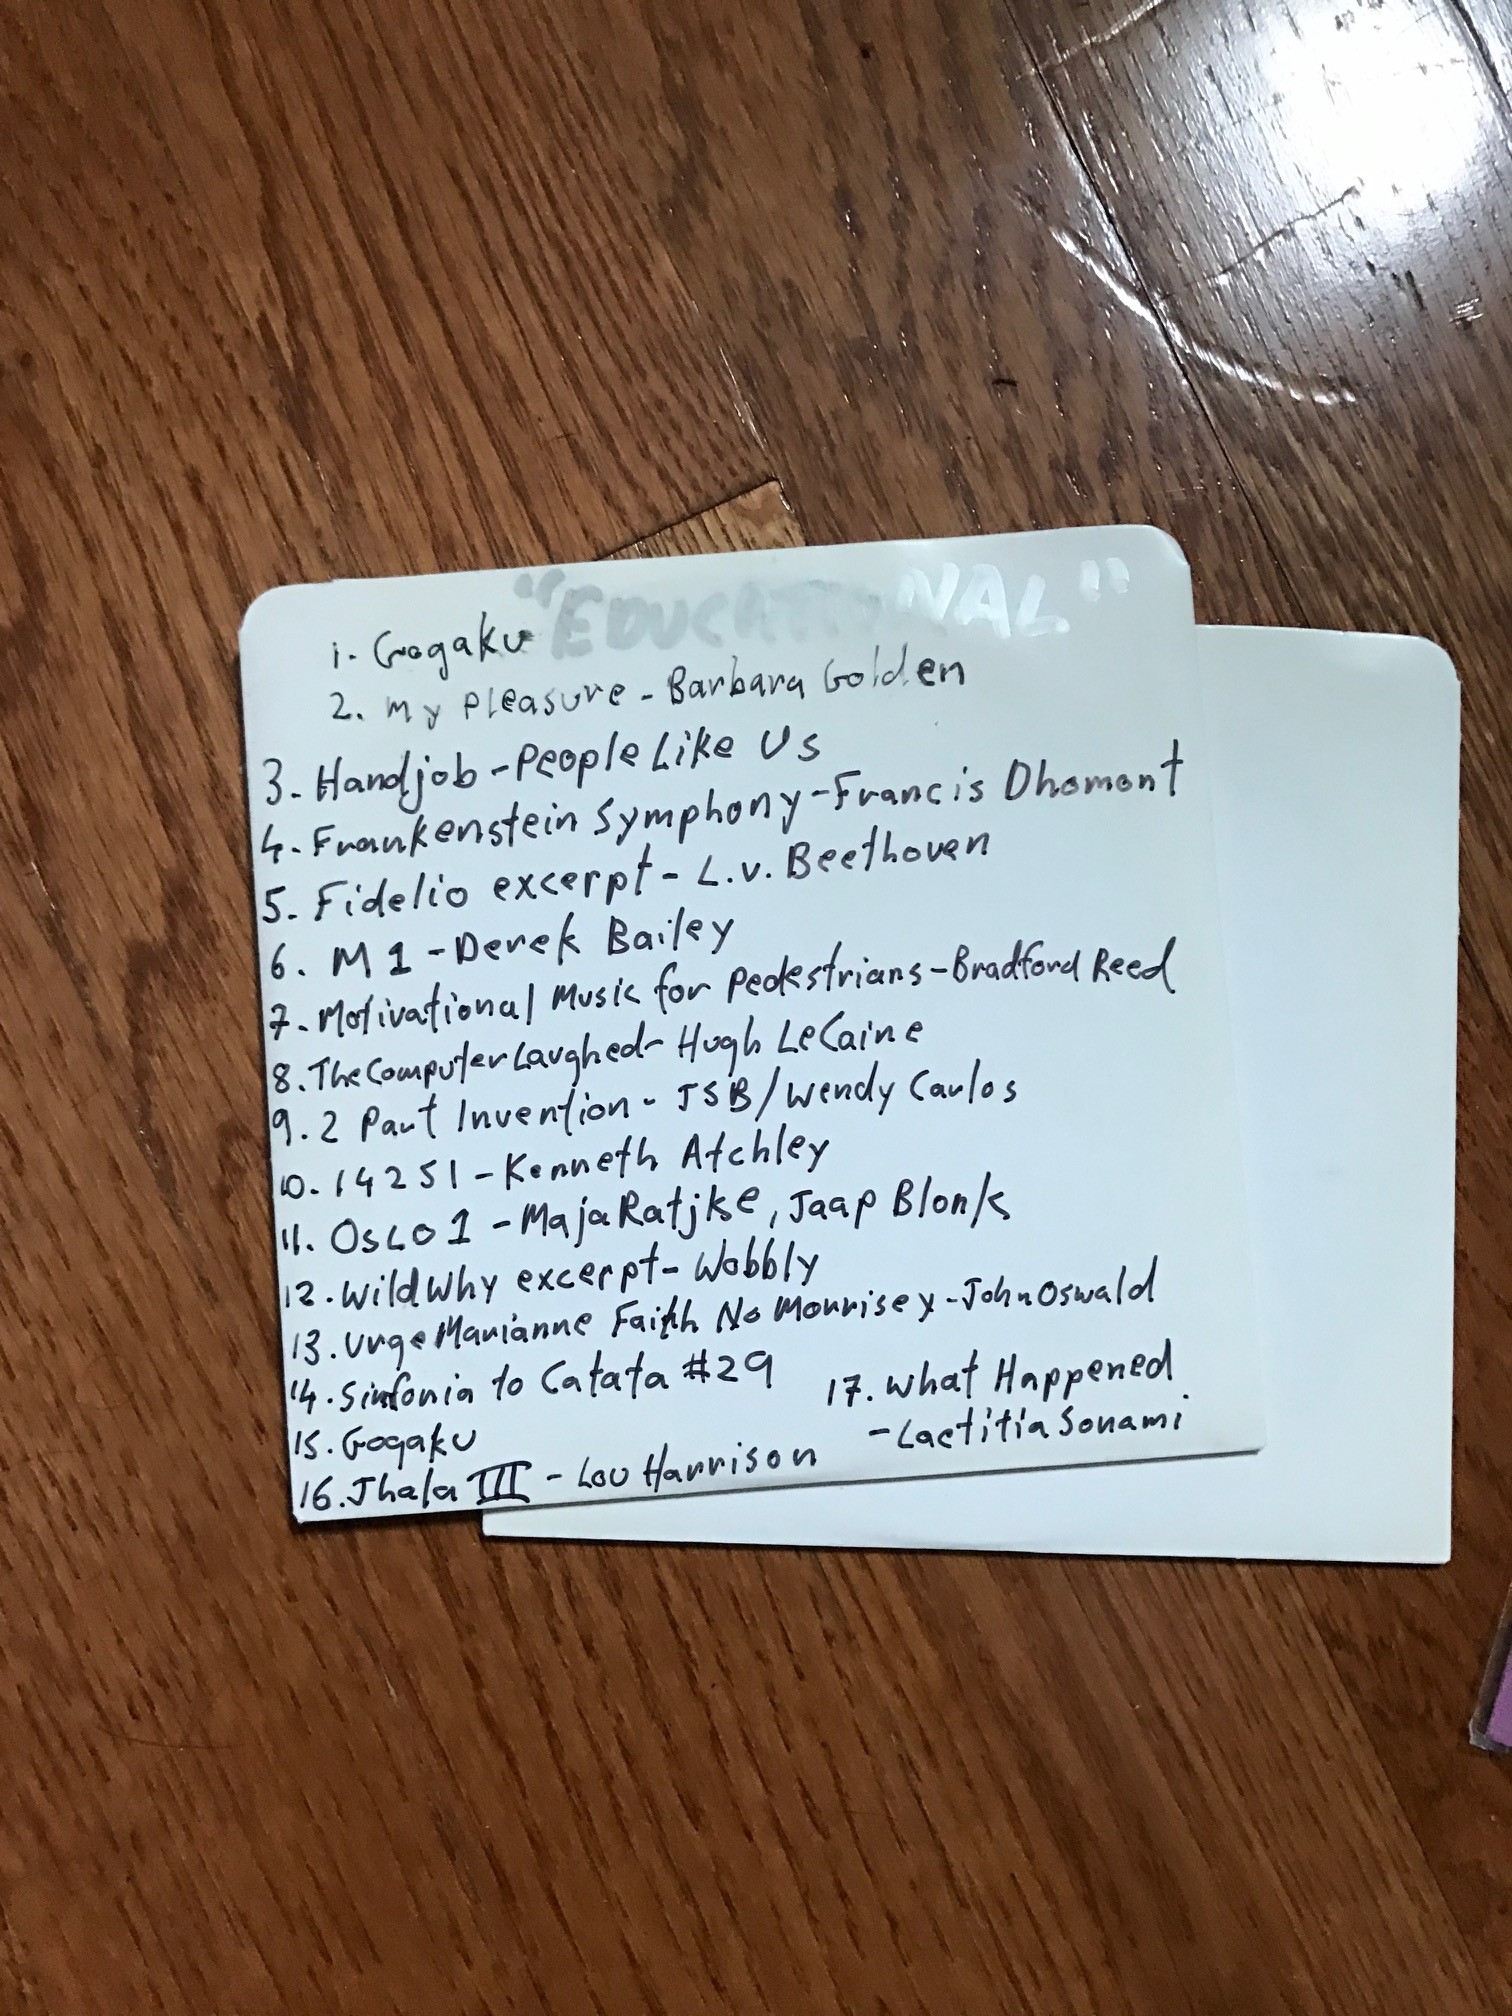 "EDUCATIONAL"
1. Gogaku
2. My Pleasure - Barbara Golden
3. Handjob - People Like Us
4. Frankenstein Symphony - Francis Dhomont
5. Fidelio excerpt - L.v. Beethoven
6. M1 - Derek Bailey
7. Motivational Music for Pedestrians - Bradford Reed
8. The Computer Laughed - Hugh LeCaine
9. 2 Part Invention - JSB/Wendy Carlos
10. 14251 - Kenneth Atchley
11. Oslo 1 - Maja Ratjke, Jaap Blonk
12. Wild Why excerpt - Wobbly
13. Urge Marianne Faith No Morrisey - John Oswald
14. Sinfonia to Catata #29
15. Gogaku
16. Jhala III - Lou Harrison
17. What Happened
- Laetitia Sonami